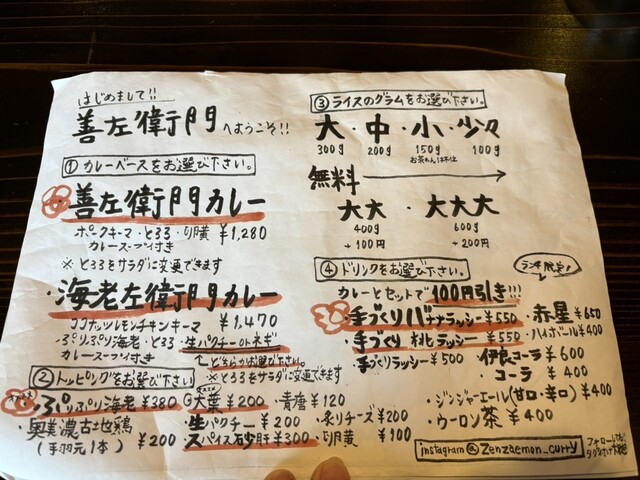 はじめまして!!
善左衛門へようこそ!!
①カレーベースをお選び下さい。
善左衛門カレー
ポークキーマ・とろろ・卵黄 ¥1,280
カレースープ付き
※とろろをサラダに変更できます
・海老左衛門カレー
ココナッツレモンチキンキーマ ¥1,470
・ぷりぷり海老・とろろ・生パクチーorネギ
カレースープ付き
どちらかお選び下さい。
※とろろをサラダに変更できます
②トッピングをお選び下さい
ぷりぷり海老 ¥380
大葉 ¥200
・青唐 ¥120
・奥美濃古地鶏
(手羽元1本) ¥200
生パクチー ¥200
・炙りチーズ ¥200
スパイス砂肝 ¥300
・卵黄 ¥100
③ライスのグラムをお選び下さい。
大・中・小・少々
300g 200g 150g 100g
お茶わん1杯位
無料
大大・大大大
400g 600g
+100円 +200円
④ドリンクをお選び下さい。
ランチ限定!
カレーとセットで100円引き!!!
・手づくりバナナラッシー ¥550
・手づくり ラッシー ¥550
・手づくりラッシー ¥500
・赤星 ¥650
・ハイボール ¥400
・伊良コーラ ¥600
・コーラ ¥400
・ジンジャーエール(甘口・辛口) ¥400
・ウーロン茶 ¥400
instagram @Zenzaemon_curry